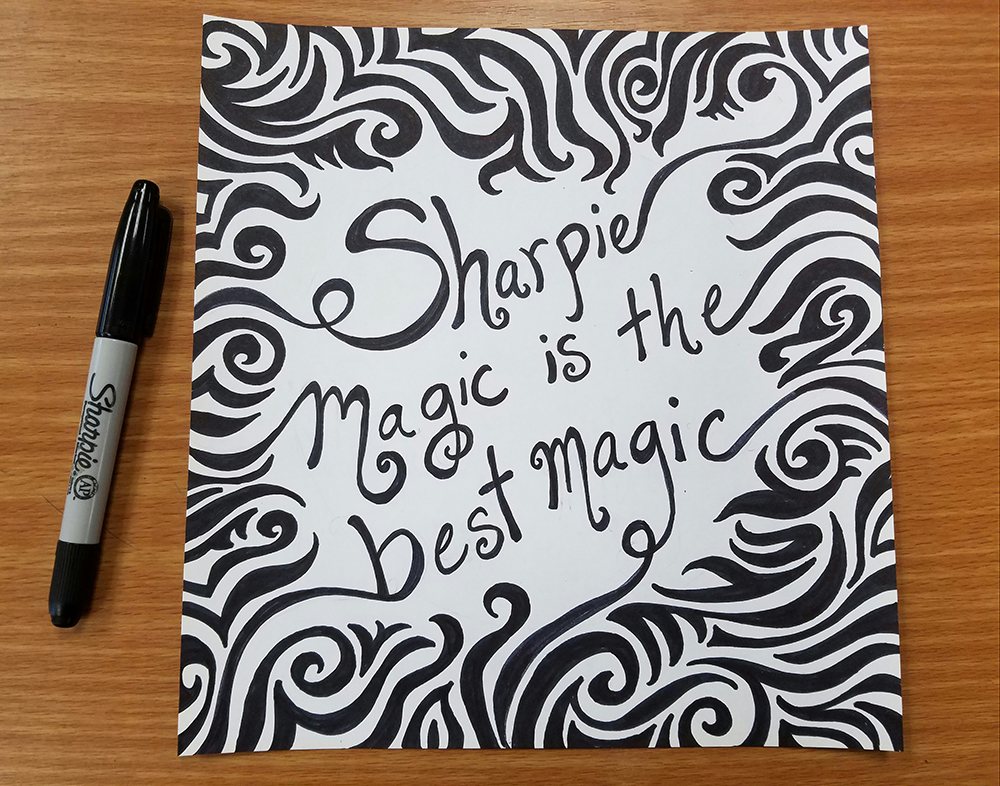 Sharpie
magic is the
best magic
Sharpie
AP